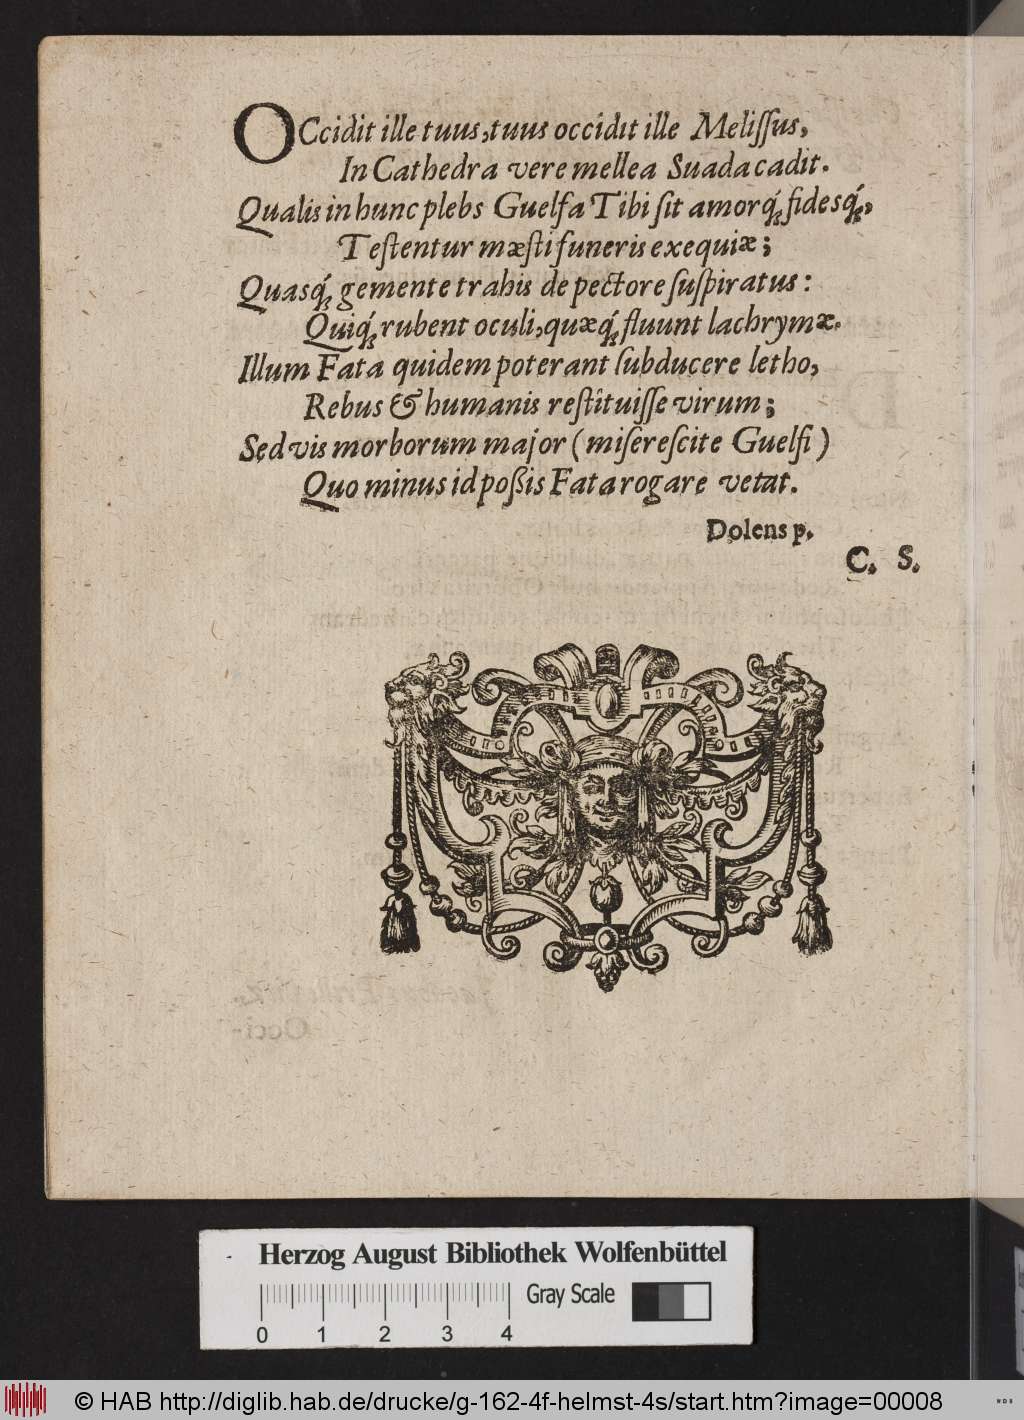 OCcidit ille tuus, tuus occidit ille Melissus,
In Cathedra vere mellea Suada cadit.
Qualis in hunc plebs Guelfa Tibi sit amorq́; fidesq́;,
Testentur mæsti funeris exequiæ;
Quasq́; gemente trahis de pectore suspiratus:
Quiq́; rubent oculi, quæq́; fluunt lachrymæ.
Illum Fata quidem poterant subducere letho,
Rebus & humanis restituisse virum;
Sed vis morborum major (miserescite Guelfi)
Quo minus id poßis Fata rogare vetat.
Dolens p.
C. S.
Herzog August Bibliothek Wolfenbüttel
0 1 2 3 4 Gray Scale
© HAB http://diglib.hab.de/drucke/g-162-4f-helmst-4s/start.htm?image=00008